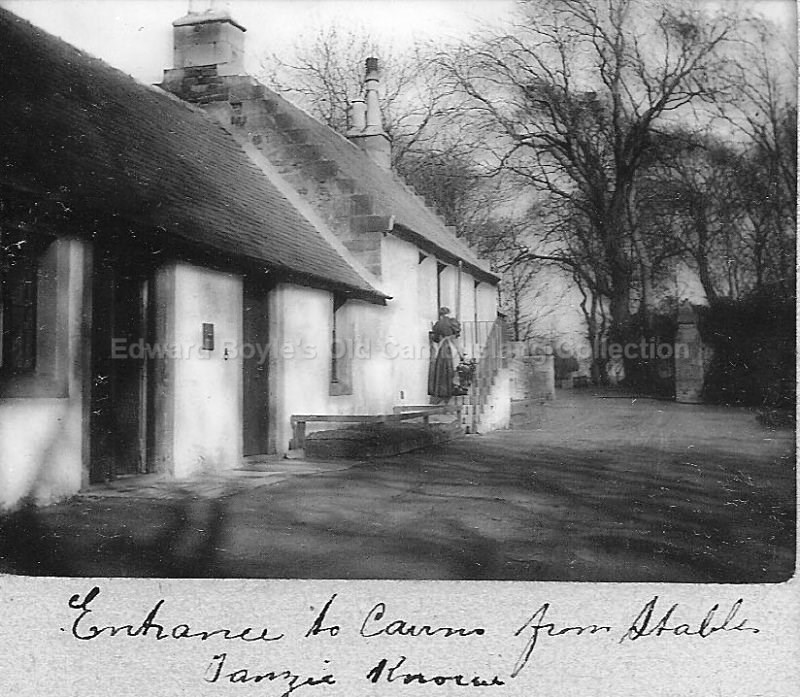 Edward Boyle's Old Cambuslang Collection
Entrance to Cairns from Stables
Tanzie Knowe